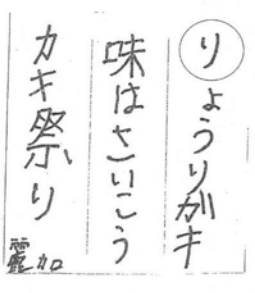 りょうりガキ
味はさいこう
カキ祭り
麗加